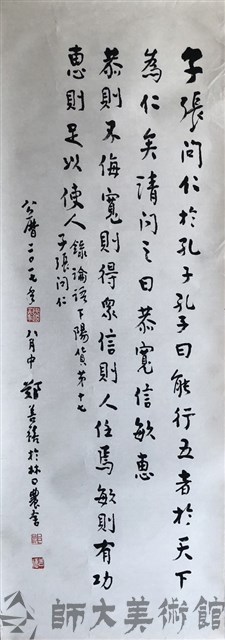 子張問仁於孔子孔子曰能行五者於天下
為仁矣請問之曰恭寬信敏惠
恭則不侮寬則得眾信則人任焉敏則有功
惠則足以使人 錄論語下陽貨第十七
子張問仁
公曆二〇一九年 八月中 鄭善禧於林口農舍
師大美術館